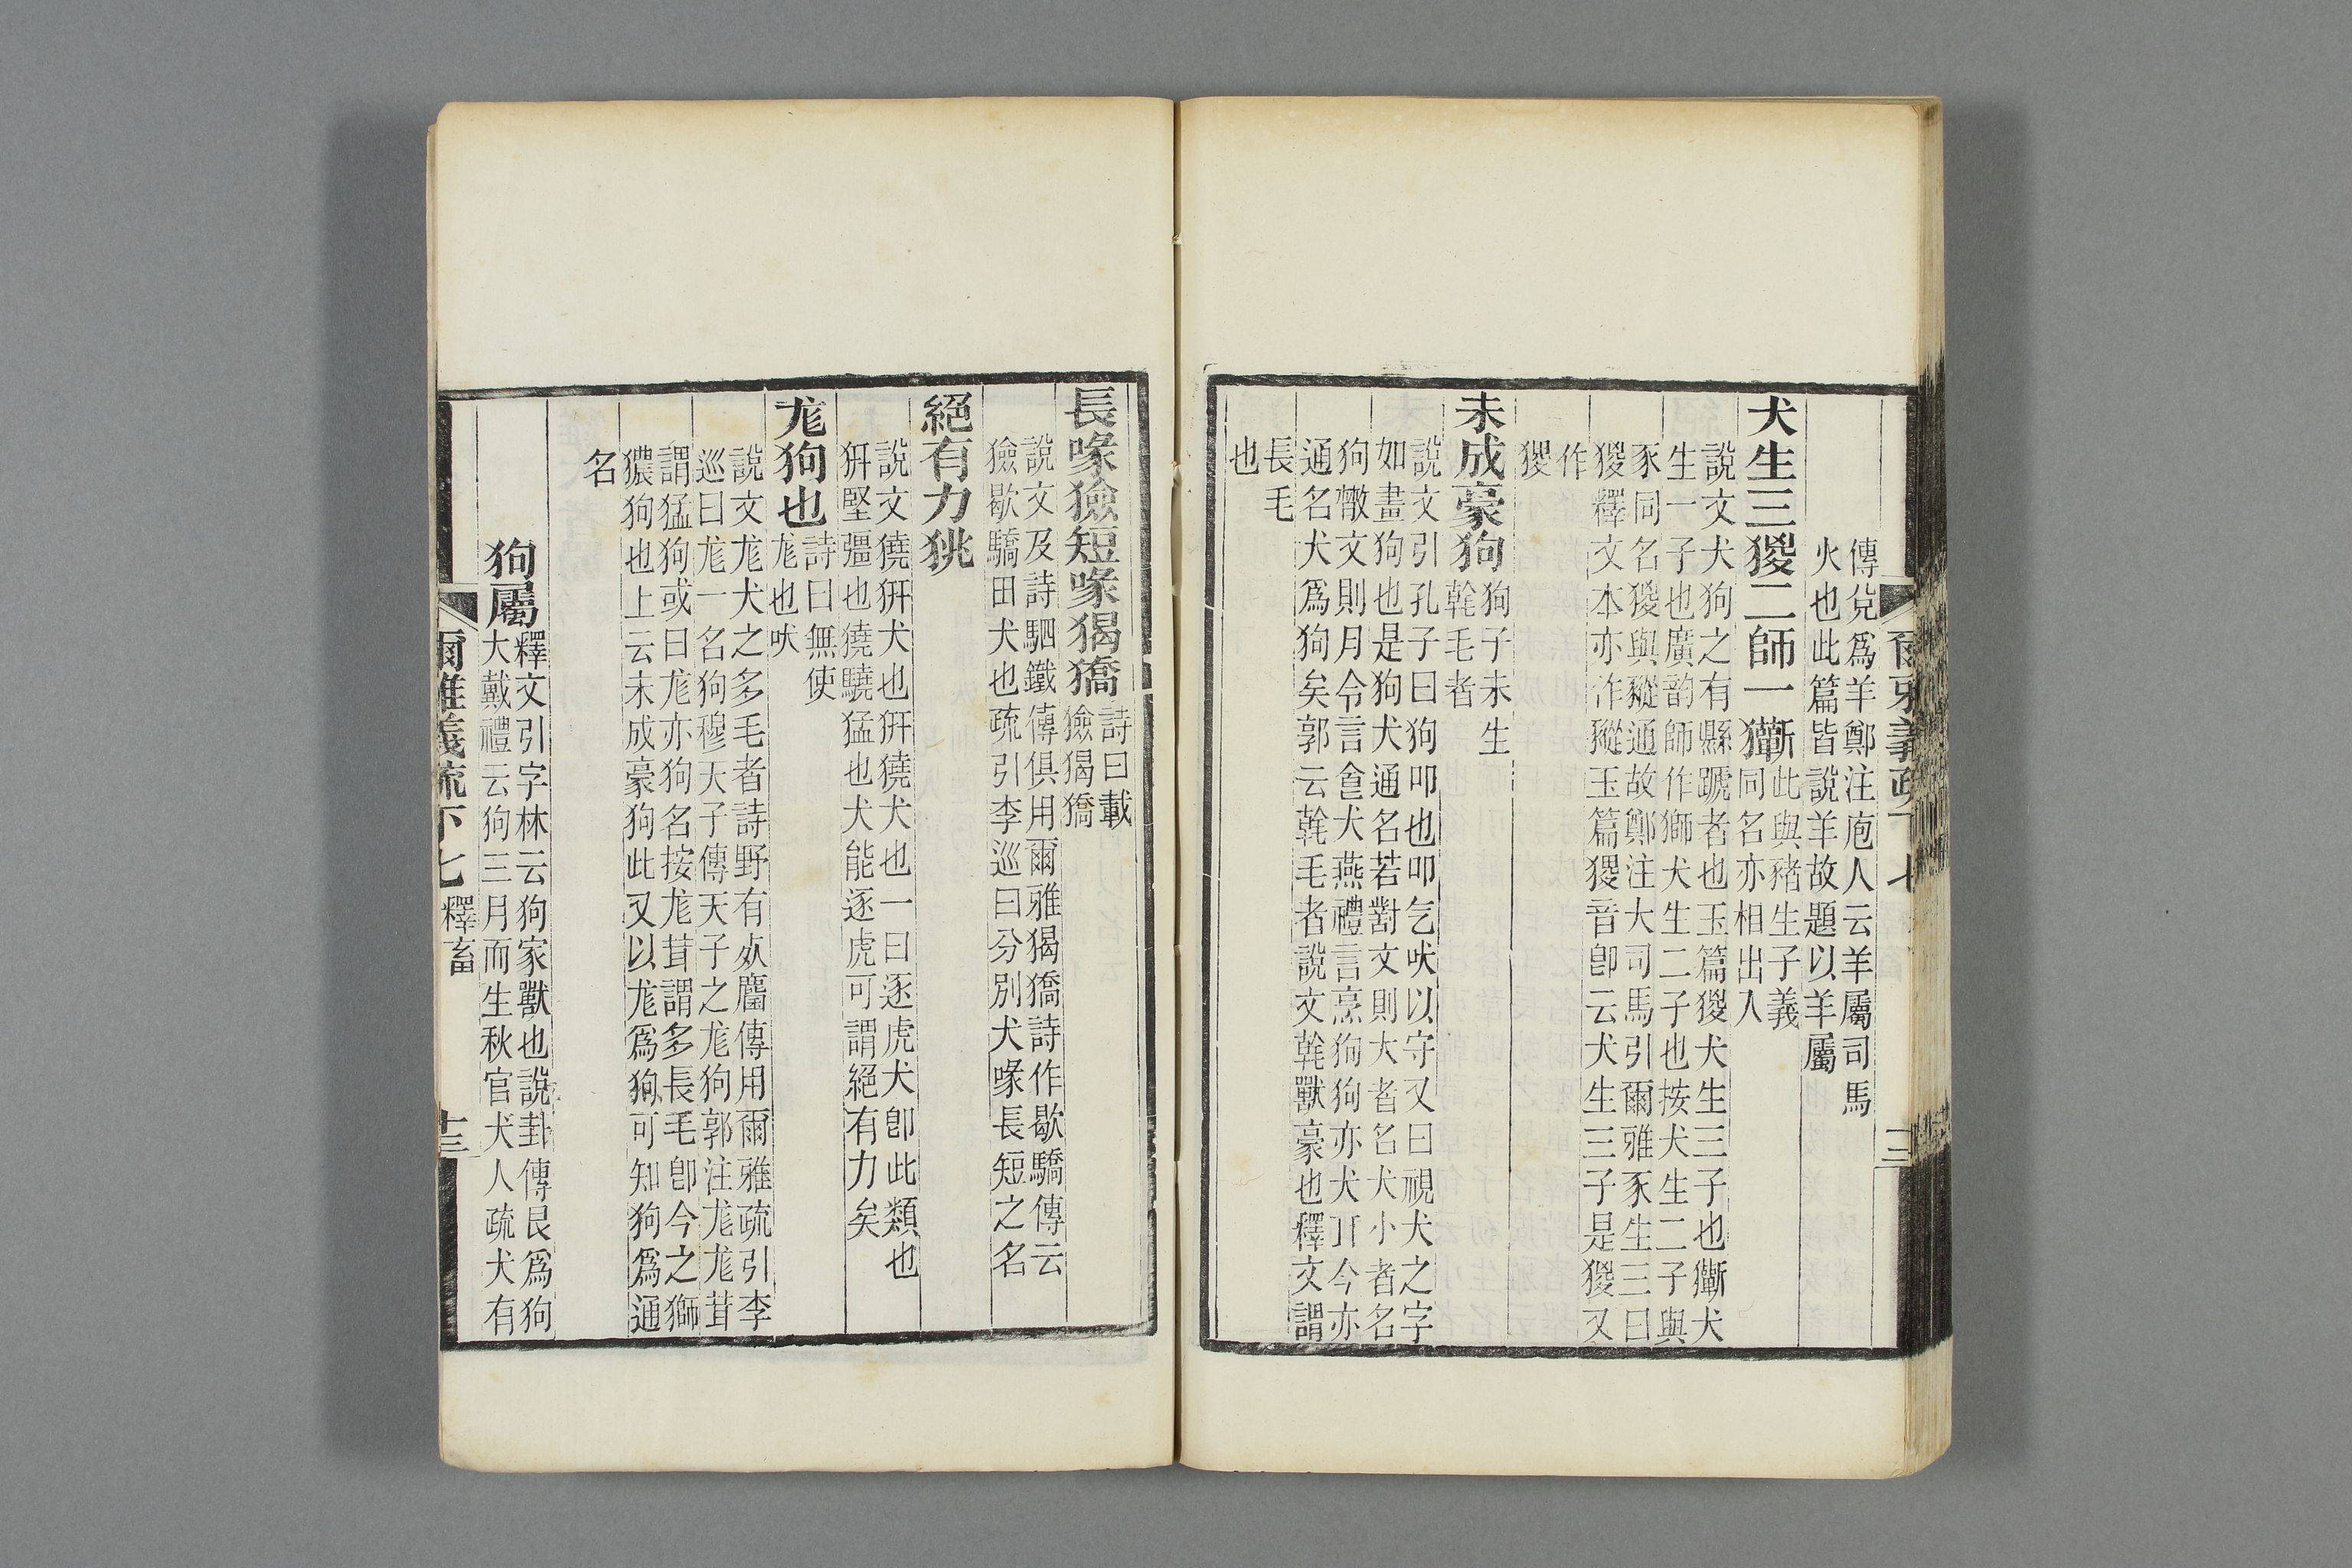 傳兌爲羊鄭注庖人云羊屬司馬
火也此篇皆說羊故題以羊屬
犬生三猣二師一玂
此與豬生子義
同名亦相出入
說文犬狗之有縣蹏者也玉篇猣犬生三子也玂犬
生一子也廣韵師作獅犬生二子也按犬生二子與
豕同名猣與豵通故鄭注大司馬引爾雅豕生三曰
猣釋文本亦作豵玉篇猣音卽云犬生三子是猣又
作
猣
未成豪狗
狗子未生
㲦毛者
說文引孔子曰狗叩也叩气吠以守又曰視犬之字
如畫狗也是狗犬通名若對文則大者名犬小者名
狗㪣文則月令言食犬燕禮言烹狗狗亦犬耳今亦
通名犬爲狗矣郭云㲦毛者說文㲦獸豪也釋文謂
長毛
也
長喙獫短喙猲獢
詩曰載
獫猲獢
說文及詩駟鐵傳俱用爾雅猲獢詩作歇驕傳云
獫歇驕田犬也疏引李巡曰分別犬喙長短之名
絕有力狣
說文獟犴犬也犴獟犬也一曰逐虎犬卽此類也
犴堅彊也獟驍猛也犬能逐虎可謂絕有力矣
尨狗也
詩曰無使
尨也吠
說文尨犬之多毛者詩野有𣦸麕傳用爾雅疏引李
巡曰尨一名狗穆天子傳天子之尨狗郭注尨尨茸
謂猛狗或曰尨亦狗名按尨茸謂多長毛卽今之獅
獴狗也上云未成豪狗此又以尨爲狗可知狗爲通
名
狗屬
釋文引字林云狗家獸也說卦傳艮爲狗
大戴禮云狗三月而生秋官犬人疏犬有
爾雅義疏下七 釋畜
十三